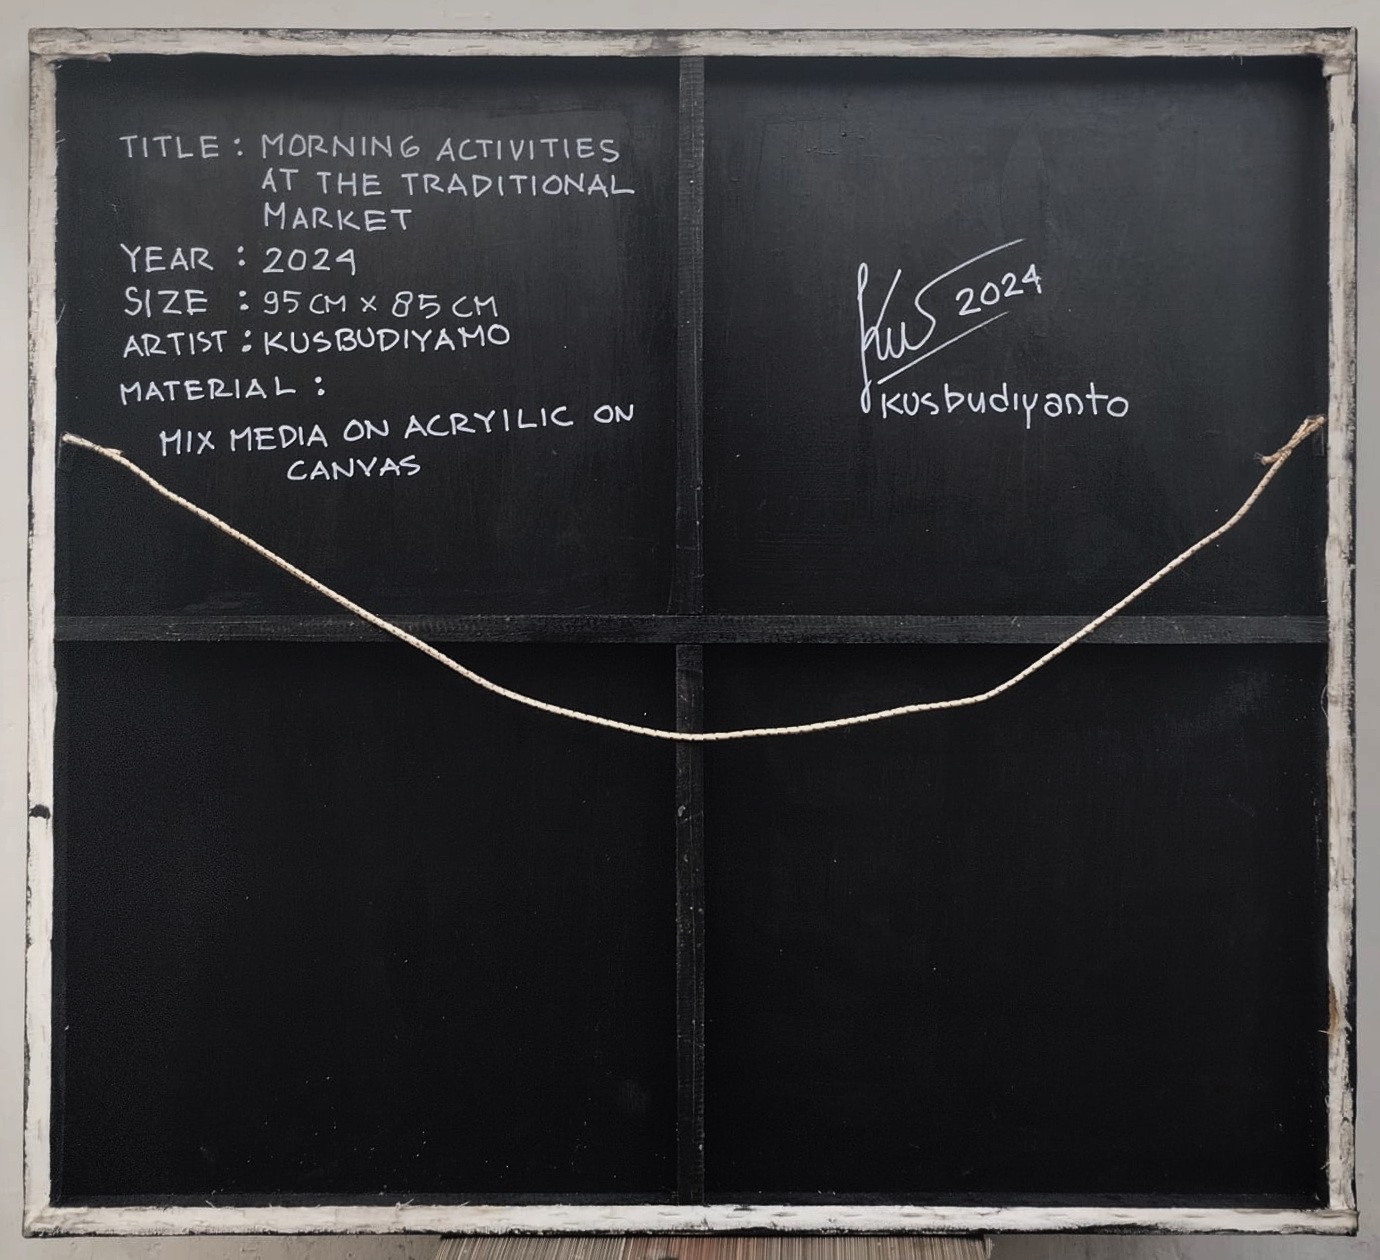 TITLE : MORNING ACTIVITIES
AT THE TRADITIONAL
MARKET
YEAR : 2024
SIZE : 95 CM X 85 CM
ARTIST : KUSBUDIYAMO
MATERIAL :
MIX MEDIA ON ACRYILIC ON
CANVAS
Kus 2024
kusbudiyanto